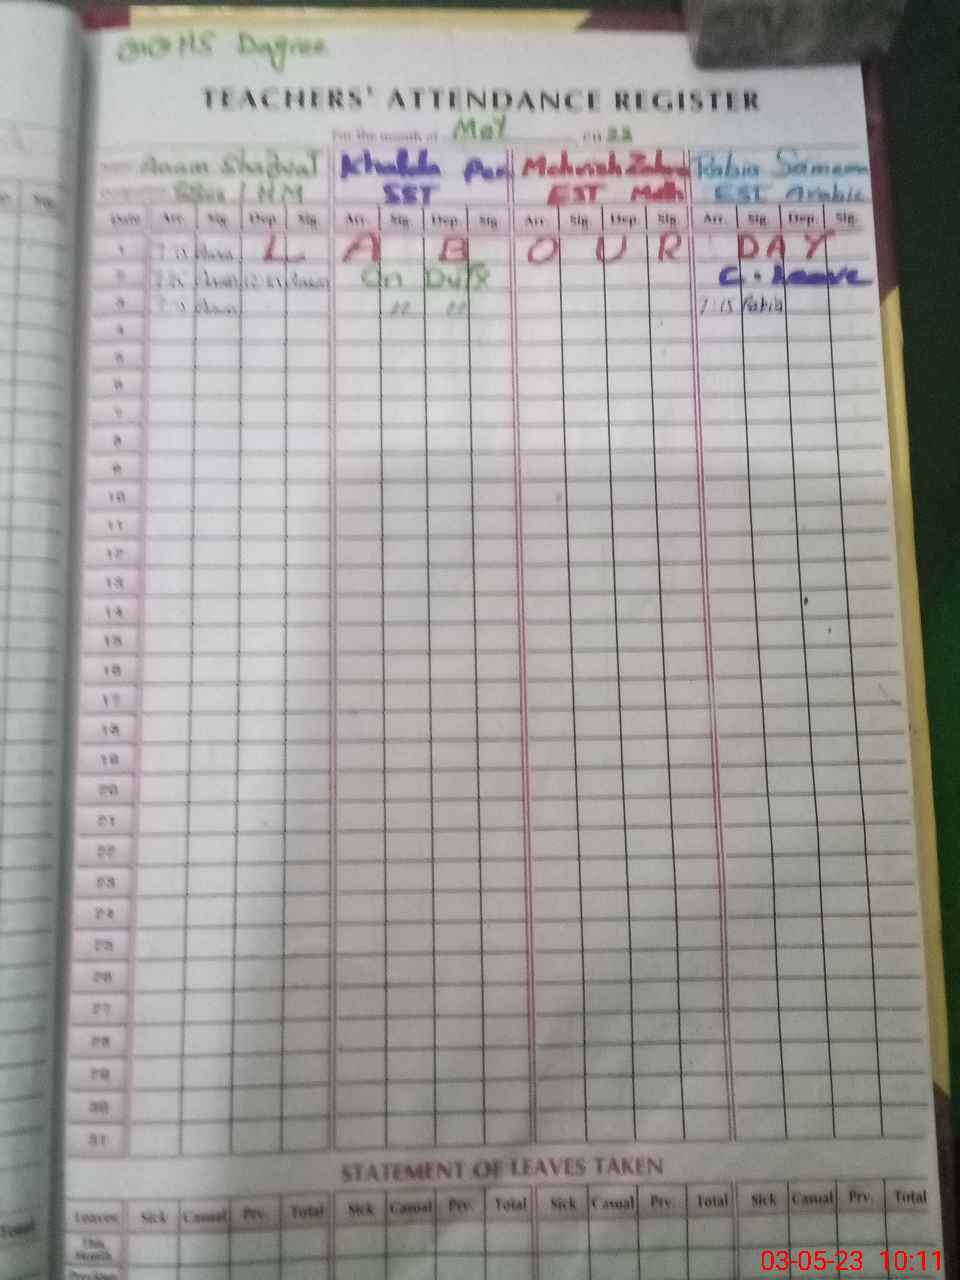 GGHS Dagree
TEACHERS' ATTENDANCE REGISTER
For the month of May 20 22
Anam Shafqat Khalida Par Mahwish Zahra Rabia Samam
/ HM SST EST Math EST Arabic
Date Arr. Sig. Dep. Sig. Arr. Sig. Dep. Sig. Arr. Sig. Dep. Sig. Arr. Sig. Dep. Sig.
1 L A B O U R D A Y
2 On Duty C. Leave
3 " " 7:15 Rabia
4
5
6
7
8
9
10
11
12
13
14
15
16
17
18
19
20
21
22
23
24
25
26
27
28
29
30
31
STATEMENT OF LEAVES TAKEN
Leaves Sick Casual Prv. Total Sick Casual Prv. Total Sick Casual Prv. Total Sick Casual Prv. Total
This Month
Previous
Total
03-05-23 10:11